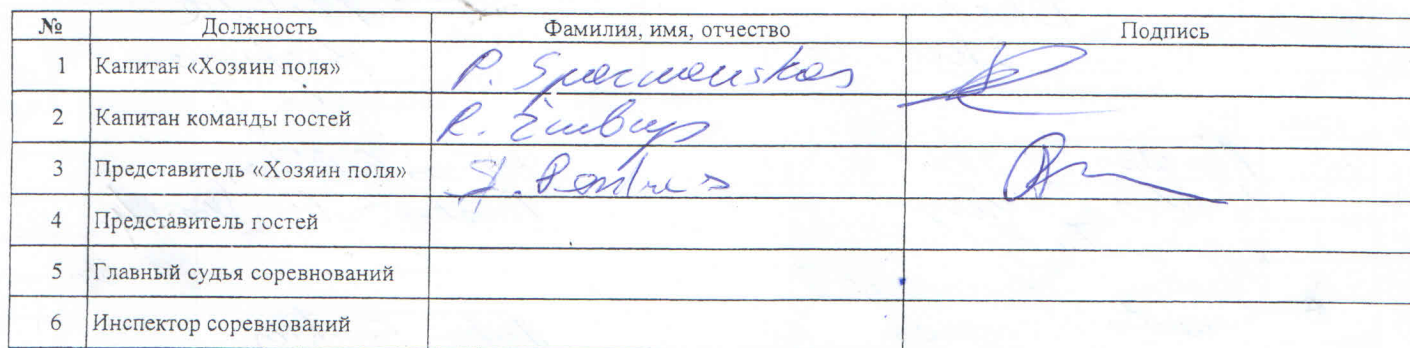 № Должность Фамилия, имя, отчество Подпись
1 Капитан «Хозяин поля» P.
2 Капитан команды гостей R.
3 Представитель «Хозяин поля»
4 Представитель гостей
5 Главный судья соревнований
6 Инспектор соревнований